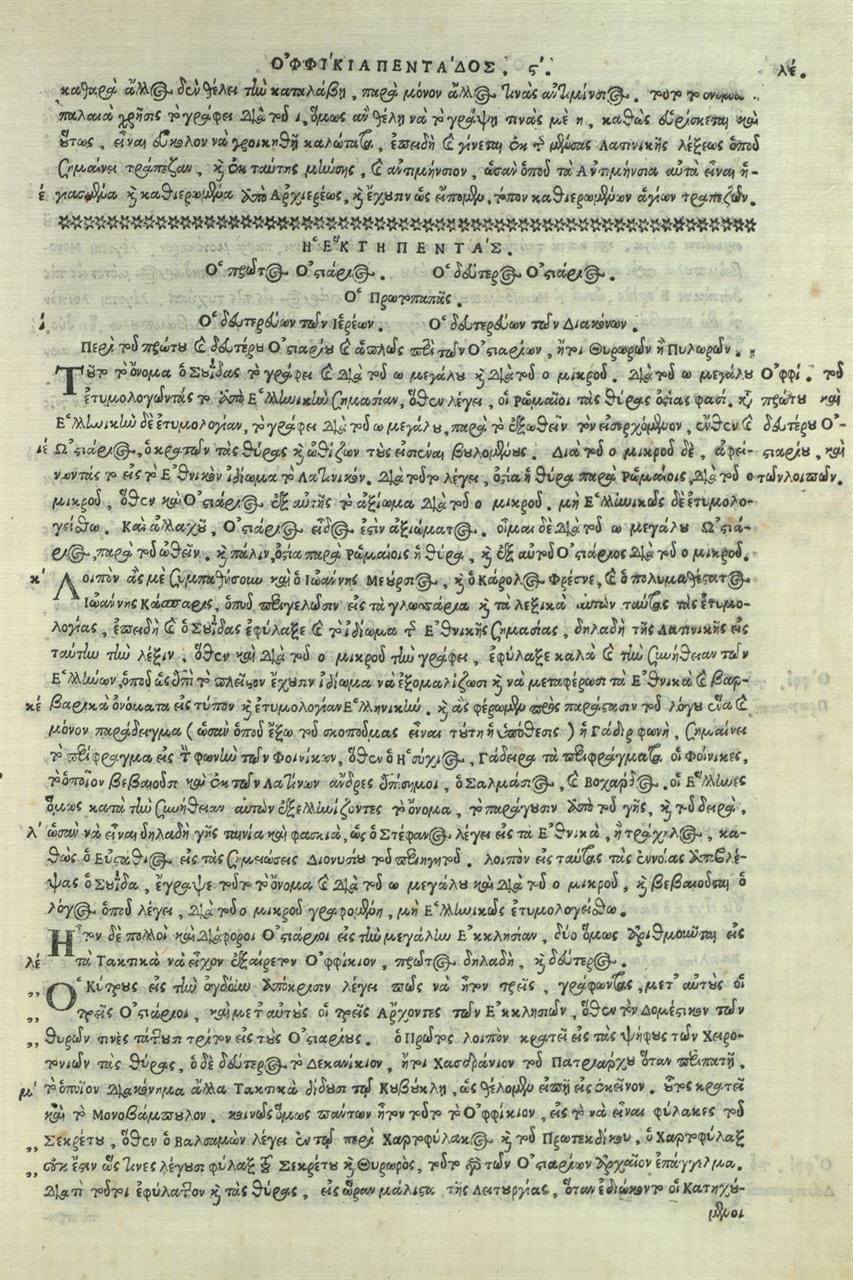 ΟΦΦΙΚΙΑ ΠΕΝΤΑΔΟΣ, ϛʹ. λέ.
καθαρὰ ἄλλο δὲν θέλει τὴν καταλάβῃ, παρὰ μόνον ἄλλο τινὰς ἀντιμίνσιο. τοῦτο τὸ ὄνομα
παλαιὰ χρῆσις τὸ γράφει διὰ τοῦ ι, ὅμως ἂν θέλῃ νὰ τὸ γράψῃ τινὰς μὲ η, καθὼς εὑρίσκεται καὶ
οὕτως, εἶναι εὔκολον νὰ γροικηθῇ καλώτατα, ἐπειδὴ καὶ γίνεται ἐκ τῆς μένσας Λατινικῆς λέξεως ὁποῦ
σημαίνει τράπεζαν, καὶ ἐκ ταύτης μήνσης, καὶ ἀντιμήνσιον, ὡσὰν ὁποῦ τὰ Ἀντιμήνσια αὐτὰ εἶναι ἡ-
έ γιασμένα καὶ καθιερωμένα ὑπὸ Ἀρχιερέως, καὶ ἔχουσιν ὡς εἴπομεν, τόπον καθιερωμένων ἁγίων τραπεζῶν.
Ἡ ἝΚΤΗ ΠΕΝΤΑΣ.
Ὁ πρῶτος Ὀστιάριος. Ὁ δεύτερος Ὀστιάριος.
Ὁ Πρωτοπαπᾶς.
ί Ὁ δευτερεύων τῶν Ἱερέων. Ὁ δευτερεύων τῶν Διακόνων.
Περὶ τοῦ πρώτου καὶ δευτέρου Ὀστιαρίου καὶ ἁπλῶς περὶ τῶν Ὀστιαρίων, ἤτοι Θυρωρῶν ἢ Πυλωρῶν.
Τοῦτο τὸ ὄνομα ὁ Σουΐδας τὸ γράφει καὶ διὰ τοῦ ω μεγάλου καὶ διὰ τοῦ ο μικροῦ. διὰ τοῦ ω μεγάλου Ὀφφί. τοῦ
ἐτυμολογῶντάς το ἀπὸ Ἑλληνικὴν σημασίαν, ὅθεν λέγει, οἱ Ῥωμαῖοι τὰς θύρας ὀστίας φασί. καὶ πρώτου καὶ
Ἑλληνικὴν δὲ ἐτυμολογίαν, τὸ γράφει διὰ τοῦ ω μεγάλου, παρὰ τὸ ἐξωθεῖν τὸν εἰσερχόμενον, ἔνθεν καὶ δευτέρου Ὀ-
ιέ Ὠστιάριος, ὁ κρατῶν τὰς θύρας καὶ ὠθίζων τοὺς εἰσιέναι βουλομένους. Διὰ τοῦ ο μικροῦ δὲ, ἀφεί- στιαρίου, καὶ
νωντάς το εἰς τὸ Ἐθνικὸν ἰδίωμα τὸ Λατινικόν. διὰ τοῦτο λέγει, ὄστια ἡ θύρα παρὰ Ῥωμαίοις, διὰ τοῦ ο τῶν λοιπῶν.
μικροῦ, ὅθεν καὶ Ὀστιάριος ἐξ αὐτῆς τὸ ἀξίωμα διὰ τοῦ ο μικροῦ. μὴ Ἑλληνικῶς δὲ ἐτυμολο-
γείσθω. Καὶ ἀλλαχοῦ, Ὀστιάριος εἶδος ἐστὶν ἀξιώματος. οἶμαι δὲ διὰ τοῦ ω μεγάλου Ὠστιά-
ριος, παρὰ τοῦ ὠθεῖν. καὶ πάλιν, ὄστια παρὰ Ῥωμαίοις ἡ θύρα, καὶ ἐξ αὐτοῦ Ὀστιάριος διὰ τοῦ ο μικροῦ.
κ΄ Λοιπὸν ἂς μὲ συμπαθήσουν καὶ ὁ Ἰωάννης Μεύρσιος, καὶ ὁ Κάρολος Φρέσνε, καὶ ὁ πολυμαθέστατος
Ἰωάννης Κάσσαρις, ὁποῦ περιγελοῦσιν εἰς τὰ γλωσσάρια καὶ τὰ λεξικὰ αὐτῶν ταύτας τὰς ἐτυμο-
λογίας, ἐπειδὴ καὶ ὁ Σουΐδας ἐφύλαξε καὶ τὸ ἰδίωμα τῆς Ἐθνικῆς σημασίας, δηλαδὴ τῆς Λατινικῆς εἰς
ταύτην τὴν λέξιν, ὅθεν καὶ διὰ τοῦ ο μικροῦ τὴν γράφει, ἐφύλαξε καλὰ καὶ τὴν συνήθειαν τῶν
Ἑλλήνων, ὁποῦ ὡς ἐπὶ τὸ πλεῖστον ἔχουσιν ἰδίωμα νὰ ἐξομαλίζωσι καὶ νὰ μεταφέρωσι τὰ Ἐθνικὰ καὶ βαρ-
κέ βαρικὰ ὀνόματα εἰς τύπον καὶ ἐτυμολογίαν Ἑλληνικήν. καὶ ἂς φέρωμεν πρὸς παράστασιν τοῦ λόγου ἕνα καὶ
μόνον παράδειγμα (ὡσὰν ὁποῦ ἔξω τοῦ σκοποῦ μας εἶναι τούτη ἡ ὑπόθεσις) ἡ Γάδιρ φωνὴ, σημαίνει
τὸ περίφραγμα εἰς τὴν φωνὴν τῶν Φοινίκων, ὅθεν ὁ Ἡσύχιος, Γάδειρα τὰ περιφράγματα οἱ Φοίνικες,
τὸ ὁποῖον βεβαιοῦσι καὶ ἐκ τῶν Λατίνων ἄνδρες ἐπίσημοι, ὁ Σαλμάσιος, καὶ Βοχάρδος. οἱ Ἕλληνες
ὅμως κατὰ τὴν συνήθειαν αὐτῶν ἐξελληνίζοντες τὸ ὄνομα, τὸ παράγουσιν ἀπὸ τοῦ γῆς, καὶ τοῦ δειρὰ,
λ΄ ὡσὰν νὰ εἶναι δηλαδὴ γῆς ταινία καὶ φασκιὰ, ὡς ὁ Στέφανος λέγει εἰς τὰ Ἐθνικὰ, ἢ τράχηλος, κα-
θὼς ὁ Εὐστάθιος εἰς τὰς σημειώσεις Διονυσίου τοῦ περιηγητοῦ. λοιπὸν εἰς ταύτας τὰς ἐννοίας ἀποβλέ-
ψας ὁ Σουΐδα, ἔγραψε τοῦτο τὸ ὄνομα καὶ διὰ τοῦ ω μεγάλου καὶ διὰ τοῦ ο μικροῦ, καὶ βεβαιοῦται ὁ
λόγος ὁποῦ λέγει, διὰ τοῦ ο μικροῦ γραφομένη, μὴ Ἑλληνικῶς ἐτυμολογείσθω.
Ἦτον δὲ πολλοὶ καὶ διάφοροι Ὀστιάριοι εἰς τὴν μεγάλην Ἐκκλησίαν, δύο ὅμως ἀριθμοῦνται εἰς
λέ τὰ Τακτικὰ νὰ εἶχον ἐξαίρετον Ὀφφίκιον, πρῶτος δηλαδὴ, καὶ δεύτερος.
,, Ὁ Κίτρους εἰς τὴν ὀγδόην ἀπόκρισιν λέγει πῶς νὰ ἦτον τρεῖς, γράφωντας, μετ' αὐτοὺς οἱ
,, τρεῖς Ὀστιάριοι, καὶ μετ' αὐτοὺς οἱ τρεῖς Ἄρχοντες τῶν Ἐκκλησιῶν, ὅθεν τὸν Δομέστικον τῶν
,, θυρῶν τινὲς τάττουσι τρίτον εἰς τοὺς Ὀστιαρίους. ὁ Πρῶτος λοιπὸν κρατεῖ εἰς τὰς ψήφους τῶν Χειρο-
τονιῶν τὰς θύρας, ὁ δὲ δεύτερος τὸ Δεκανίκιον, ἤτοι Χασδράνιον τοῦ Πατριάρχου ὅταν περιπατῇ.
μ΄ τὸ ὁποῖον διακόνημα ἄλλα Τακτικὰ δίδουσι τῷ Κουβουκλῃ, ὡς θέλομεν εἰπῇ εἰς ἐκεῖνον. οὗτος κρατεῖ
καὶ τὸ Μονοβάμπουλον. κοινῶς ὅμως πάντων ἦτον τοῦτο τὸ Ὀφφίκιον, εἰς τὸ νὰ εἶναι φύλακες τοῦ
Σεκρέτου, ὅθεν ὁ Βαλσαμὼν λέγει ἐν τῷ περὶ Χαρτοφύλακος καὶ τοῦ Πρωτεκδίκου, ὁ Χαρτοφύλαξ
,, οὐκ ἔστιν ὥς τινες λέγουσι φύλαξ τοῦ Σεκρέτου καὶ Θυρωρὸς, τοῦτο γὰρ τῶν Ὀστιαρίων ἀρχαῖον ἐπάγγελμα.
,, Διατὶ τοῦτοι ἐφύλαττον καὶ τὰς θύρας, εἰς ὥραν μάλιστα τῆς Λειτουργίας, ὅταν ἐδιώκοντο οἱ Κατηχού-
μενοι